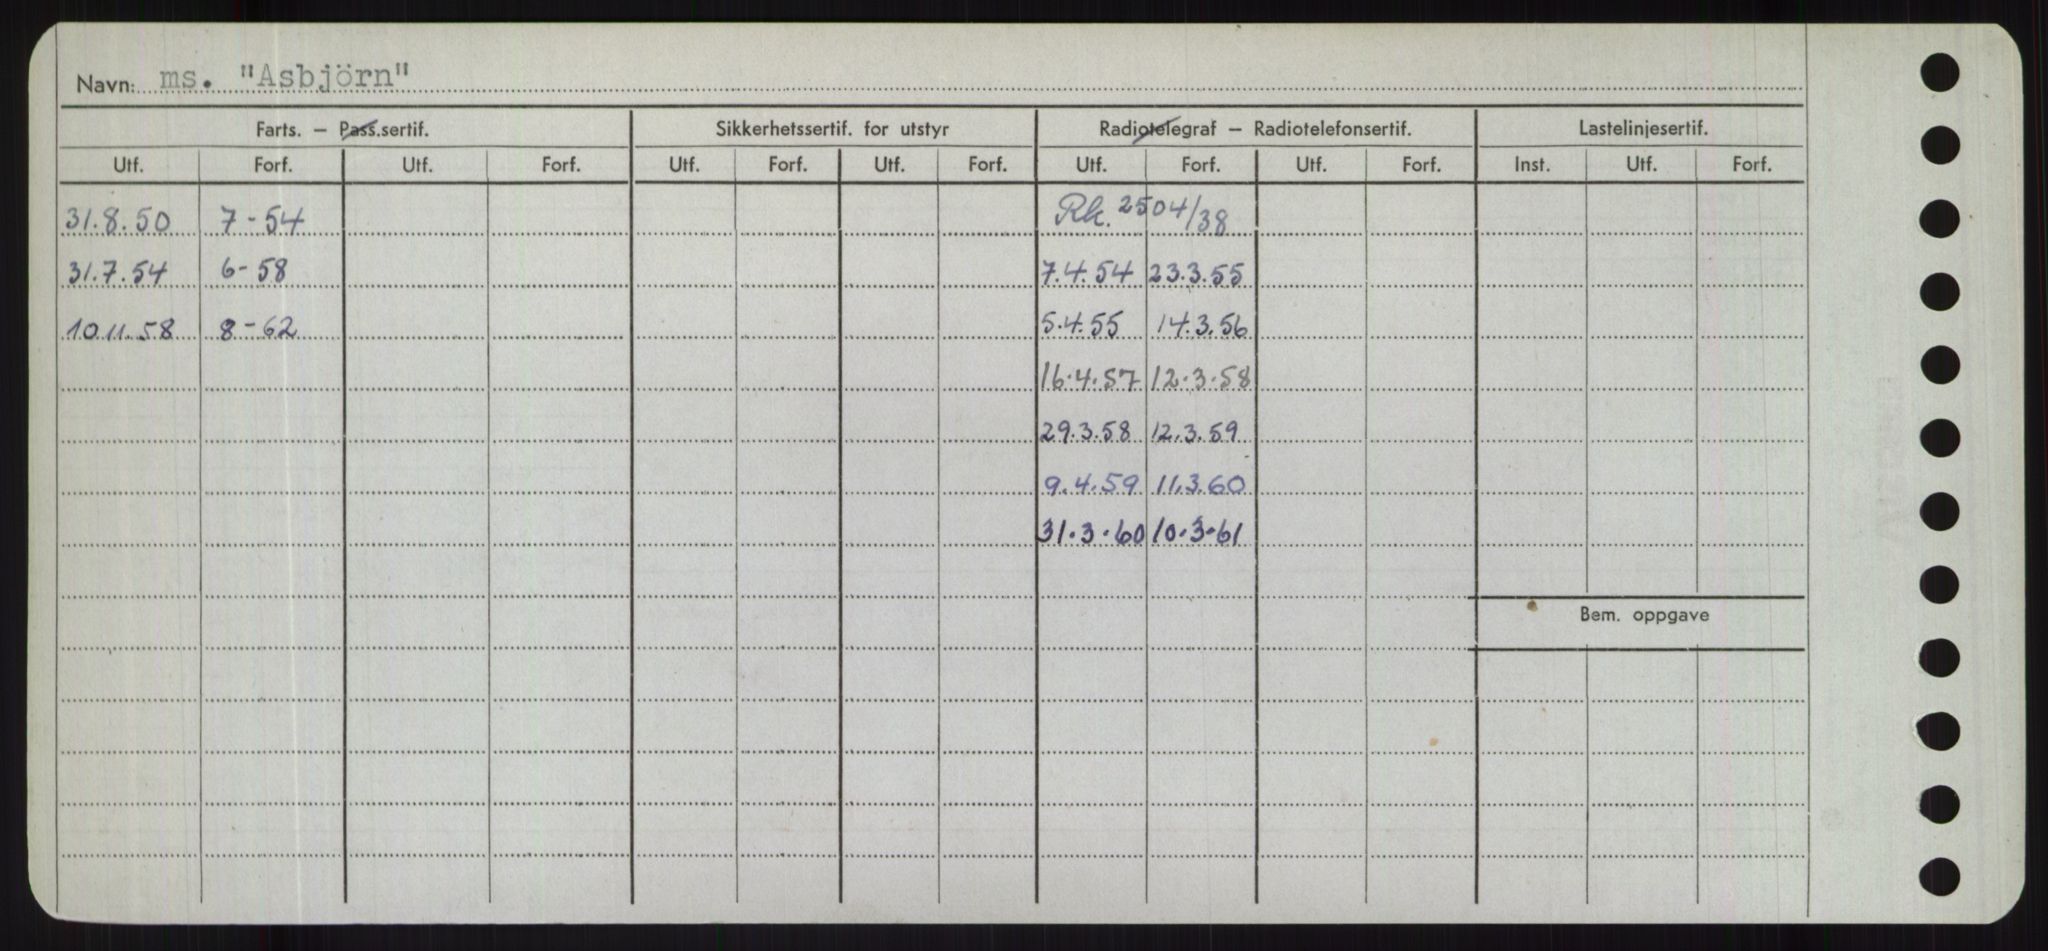 Navn: ms. "Asbjörn"
Farts. – Pass.sertif. Sikkerhetssertif. for utstyr Radiotelegraf – Radiotelefonsertif. Lastelinjesertif.
Utf. Forf. Utf. Forf. Utf. Forf. Utf. Forf. Utf. Forf. Utf. Forf. Inst. Utf. Forf.
31.8.50 7-54 Rk. 2504/38
31.7.54 6-58 7.4.54 23.3.55
10.11.58 8-62 5.4.55 14.3.56
16.4.57 12.3.58
29.3.58 12.3.59
9.4.59 11.3.60
31.3.60 10.3.61
Bem. oppgave